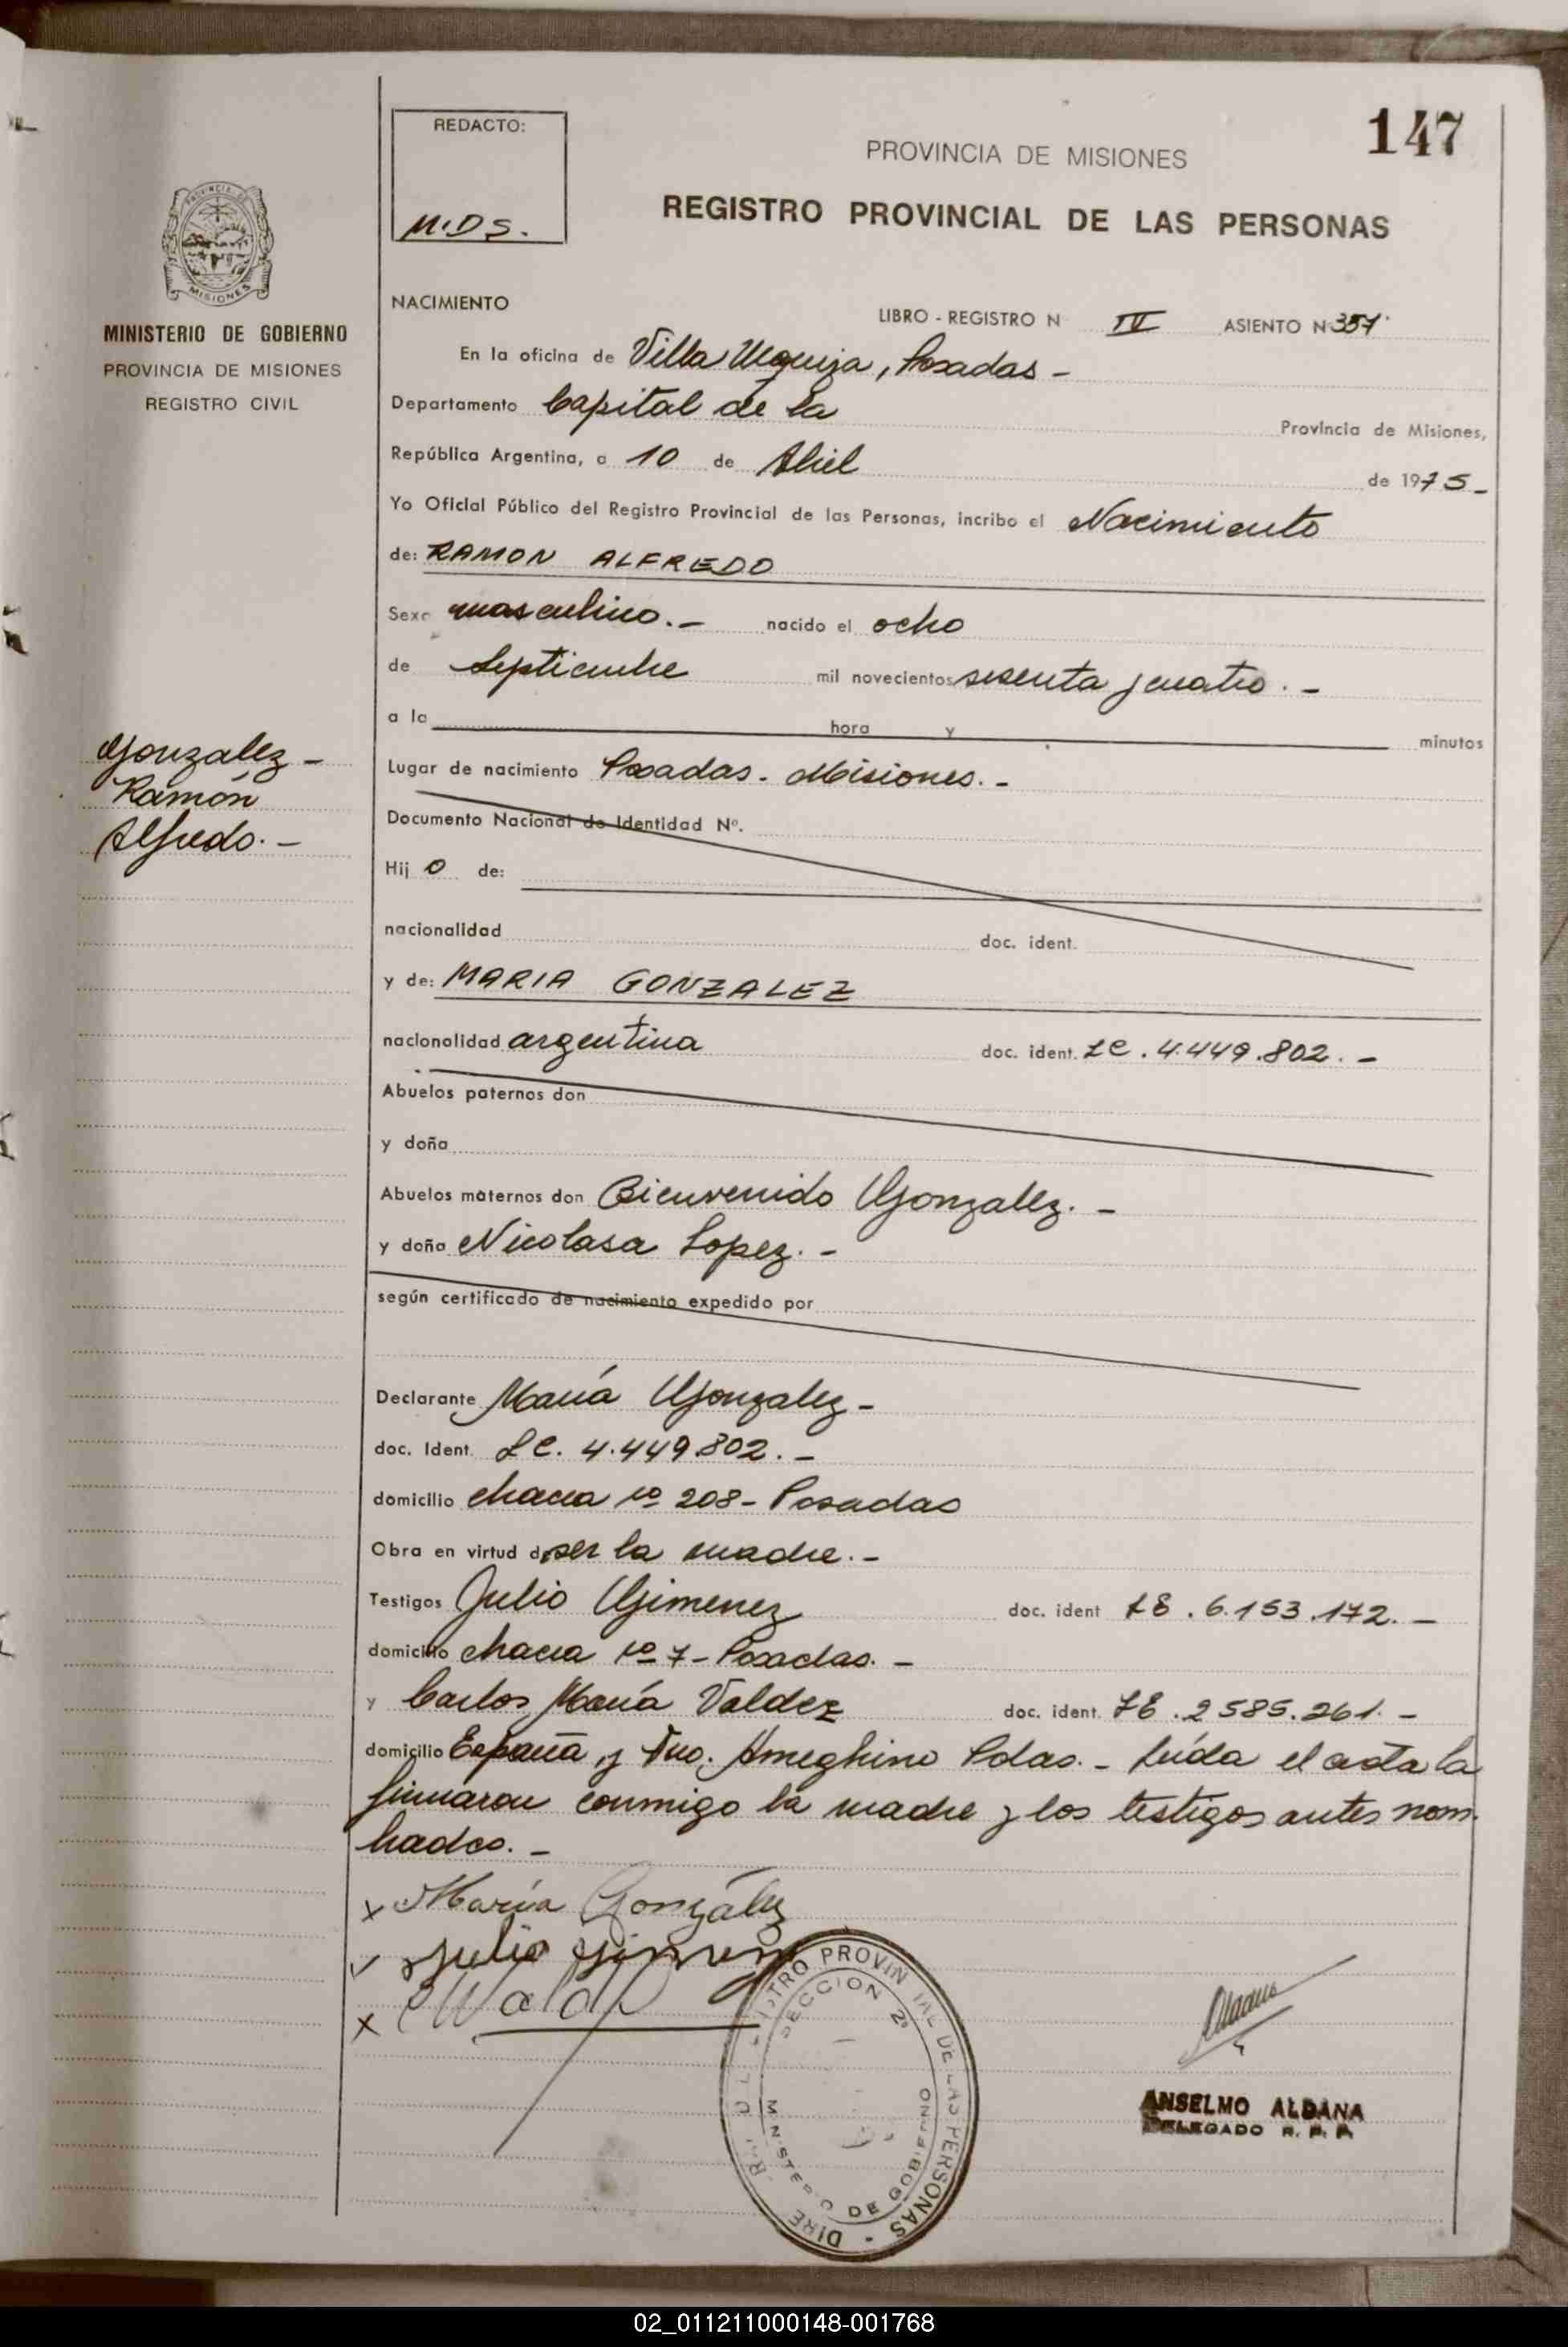 147
REDACTO:
M.D S.
PROVINCIA DE MISIONES
REGISTRO PROVINCIAL DE LAS PERSONAS
PROVINCIA DE
MISIONES
MINISTERIO DE GOBIERNO
PROVINCIA DE MISIONES
REGISTRO CIVIL
NACIMIENTO
LIBRO - REGISTRO N IV ASIENTO N 351
En la oficina de Villa Urquiza, Posadas -
Departamento Capital de la Provincia de Misiones,
República Argentina, a 10 de Abril de 1975 -
Yo Oficial Público del Registro Provincial de las Personas, incribo el Nacimiento
de: RAMON ALFREDO
Sexo masculino. - nacido el ocho
de Septiembre mil novecientos sesenta y cuatro. -
a la hora y minutos
Gonzalez -
Ramón
Alfredo. -
Lugar de nacimiento Posadas - Misiones. -
Documento Nacional de Identidad Nº.
Hij o de:
nacionalidad doc. ident.
y de: MARIA GONZALEZ
nacionalidad argentina doc. ident. LC . 4.449.802. -
Abuelos paternos don
y doña
Abuelos maternos don Bienvenido Gonzalez. -
y doña Nicolasa Lopez. -
según certificado de nacimiento expedido por
Declarante María Gonzalez -
doc. Ident. LC. 4.449.802. -
domicilio chacra nº 208 - Posadas
Obra en virtud de ser la madre. -
Testigos Julio Gimenez doc. ident LE . 6.153.172. -
domicilio chacra nº 7 - Posadas. -
y Carlos María Valdez doc. ident. LE . 2585.261. -
domicilio España y Fno. Ameghino Pdas. - Leída el acta la
firmaron conmigo la madre y los testigos antes nom-
brados. -
x María González
Julio Gimenez
x
SECCION 2ª
MINISTERIO DE GOBIERNO
ANSELMO ALDANA
DELEGADO R. P. P.
02_011211000148-001768